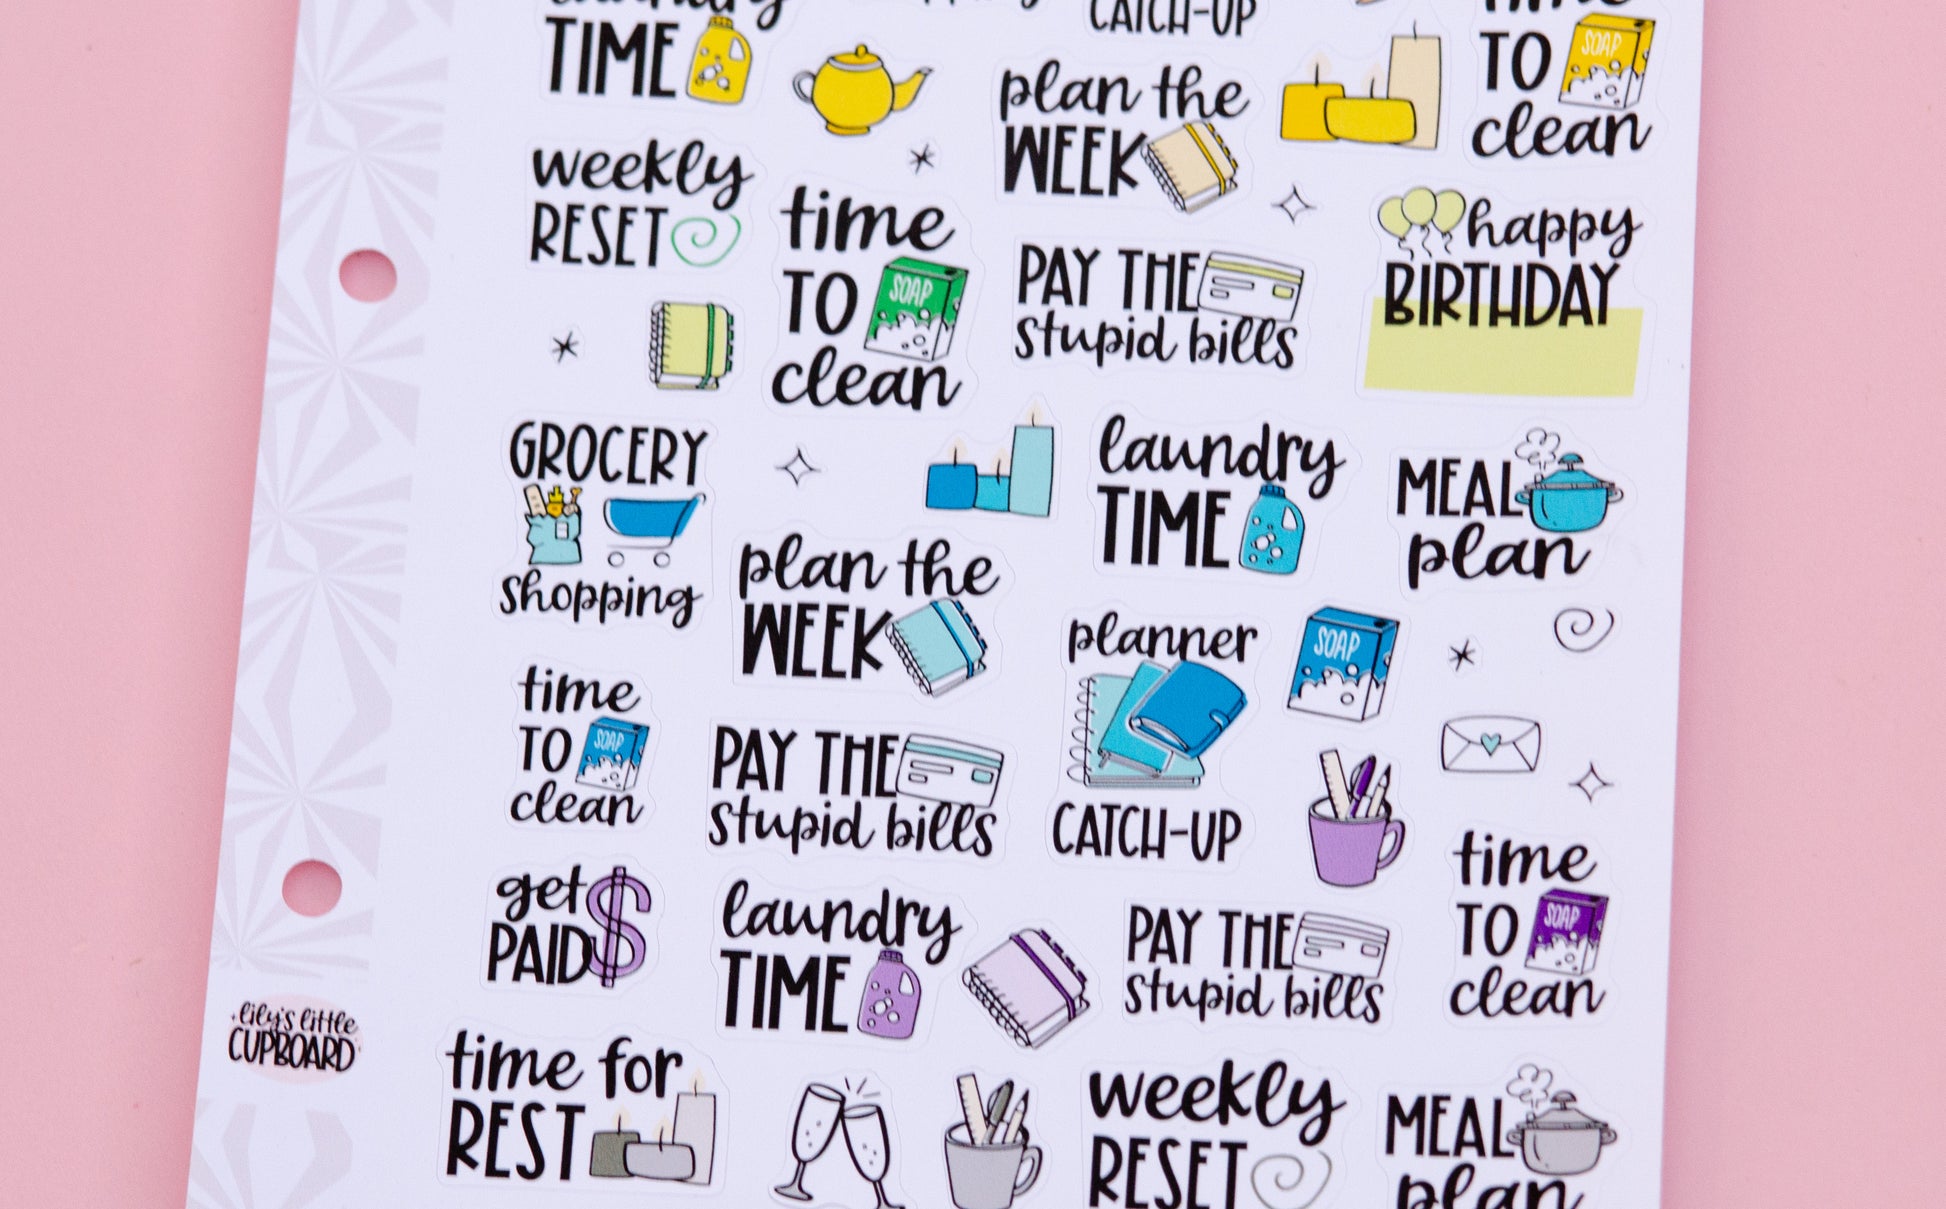 laundry
TIME
CATCH-UP
time
TO
SOAP
clean
plan the
WEEK
weekly
RESET
time
TO
SOAP
clean
PAY THE
stupid bills
happy
BIRTHDAY
GROCERY
shopping
laundry
TIME
MEAL
plan
plan the
WEEK
planner
CATCH-UP
SOAP
time
TO
SOAP
clean
PAY THE
stupid bills
get
PAID
$
laundry
TIME
PAY THE
stupid bills
time
TO
SOAP
clean
lily's little
CUPBOARD
time for
REST
weekly
RESET
MEAL
plan